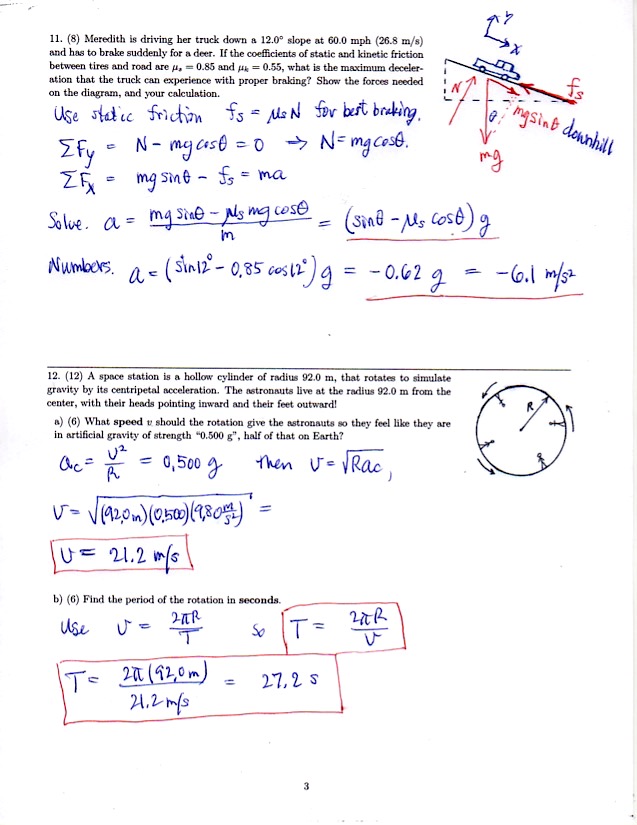 11. (8) Meredith is driving her truck down a 12.0° slope at 60.0 mph (26.8 m/s)
and has to brake suddenly for a deer. If the coefficients of static and kinetic friction
between tires and road are μₛ = 0.85 and μₖ = 0.55, what is the maximum deceler-
ation that the truck can experience with proper braking? Show the forces needed
on the diagram, and your calculation.
y
x
N
fs
θ
mg sinθ downhill
mg
Use static friction fs = μsN for best braking.
ΣFy = N - mg cosθ = 0 ⇒ N = mg cosθ.
ΣFx = mg sinθ - fs = ma
Solve. a = (mg sinθ - μs mg cosθ)/m = (sinθ - μs cosθ) g
Numbers. a = (sin12° - 0.85 cos12°) g = -0.62 g = -6.1 m/s²
12. (12) A space station is a hollow cylinder of radius 92.0 m, that rotates to simulate
gravity by its centripetal acceleration. The astronauts live at the radius 92.0 m from the
center, with their heads pointing inward and their feet outward!
R
a) (6) What speed v should the rotation give the astronauts so they feel like they are
in artificial gravity of strength "0.500 g", half of that on Earth?
ac = v²/R = 0.500 g then v = √Rac,
v = √(92.0m)(0.500)(9.80 m/s²) =
v = 21.2 m/s
b) (6) Find the period of the rotation in seconds.
Use v = 2πR/T so T = 2πR/v
T = 2π(92.0m)/21.2 m/s = 27.2 s
3